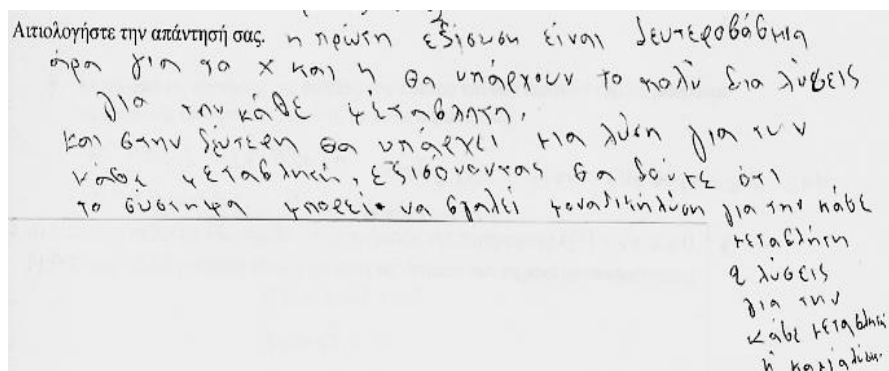 Αιτιολογήστε την απάντησή σας. η πρώτη εξίσωση είναι δευτεροβάθμια
άρα για το x και η θα υπάρχουν το πολύ δια λύσεις
για την κάθε μεταβλητη.
και στην δεύτερη θα υπάρχει μια λύση για την
κάθε μεταβλητή, εξισόνοντας θα δείτε ότι
το σύστημα μπορεί να βγαλεί μοναδική λύση για την κάθε
μεταβλήτη
2 λύσεις
για την
κάθε μεταβλητή
ή καμία λύση.